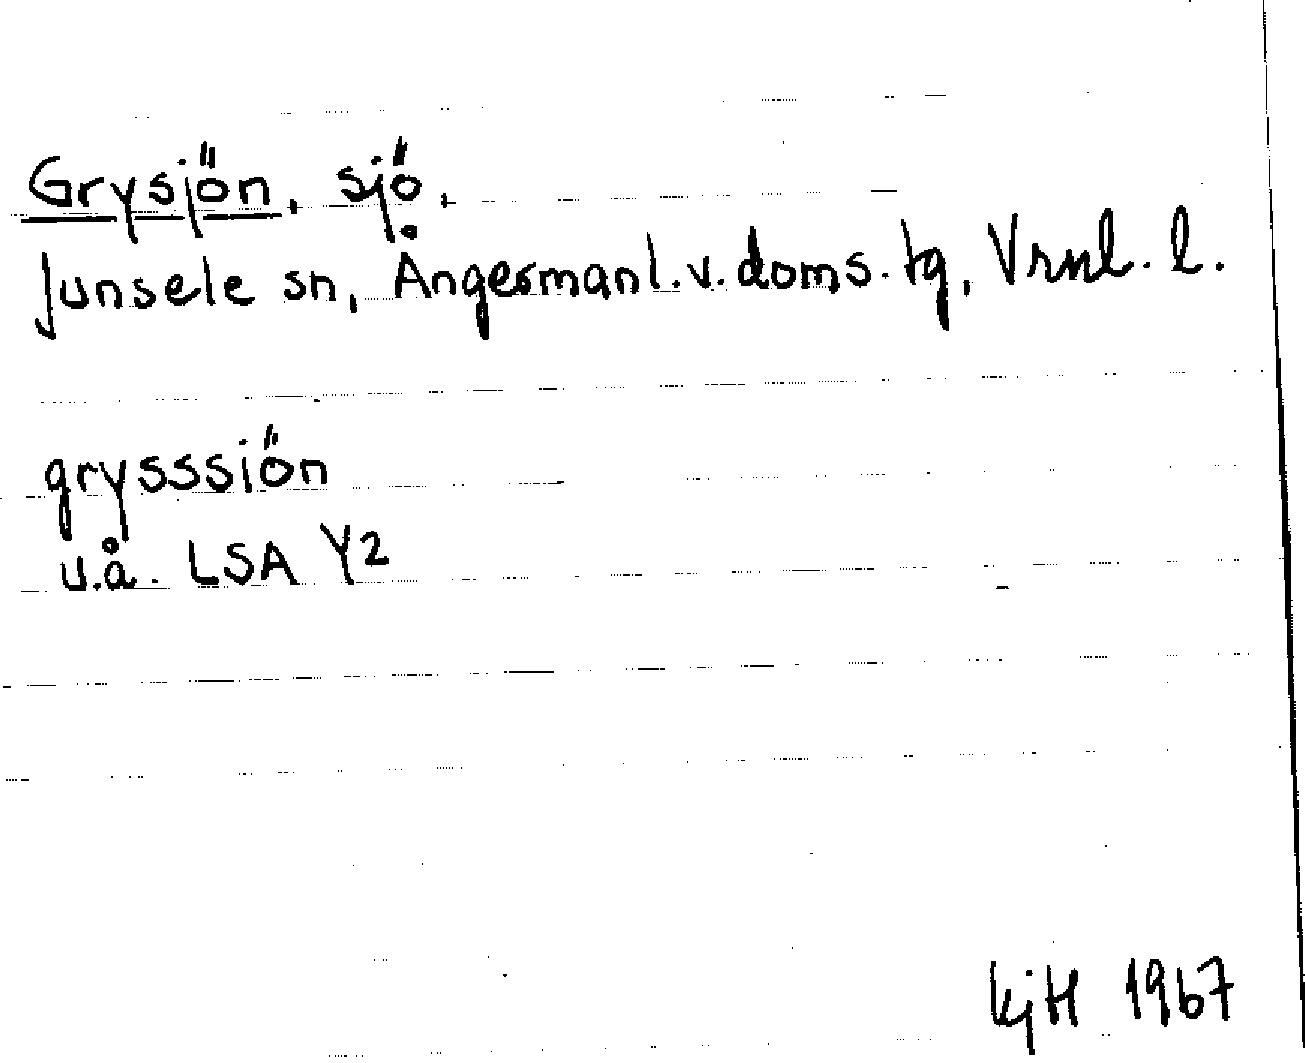 Grysjön, sjö.
Junsele sn, Ångermanl.v.doms.tg, Vrnl. l.
grysssiön
u.å. LSA Y2
kjH 1967